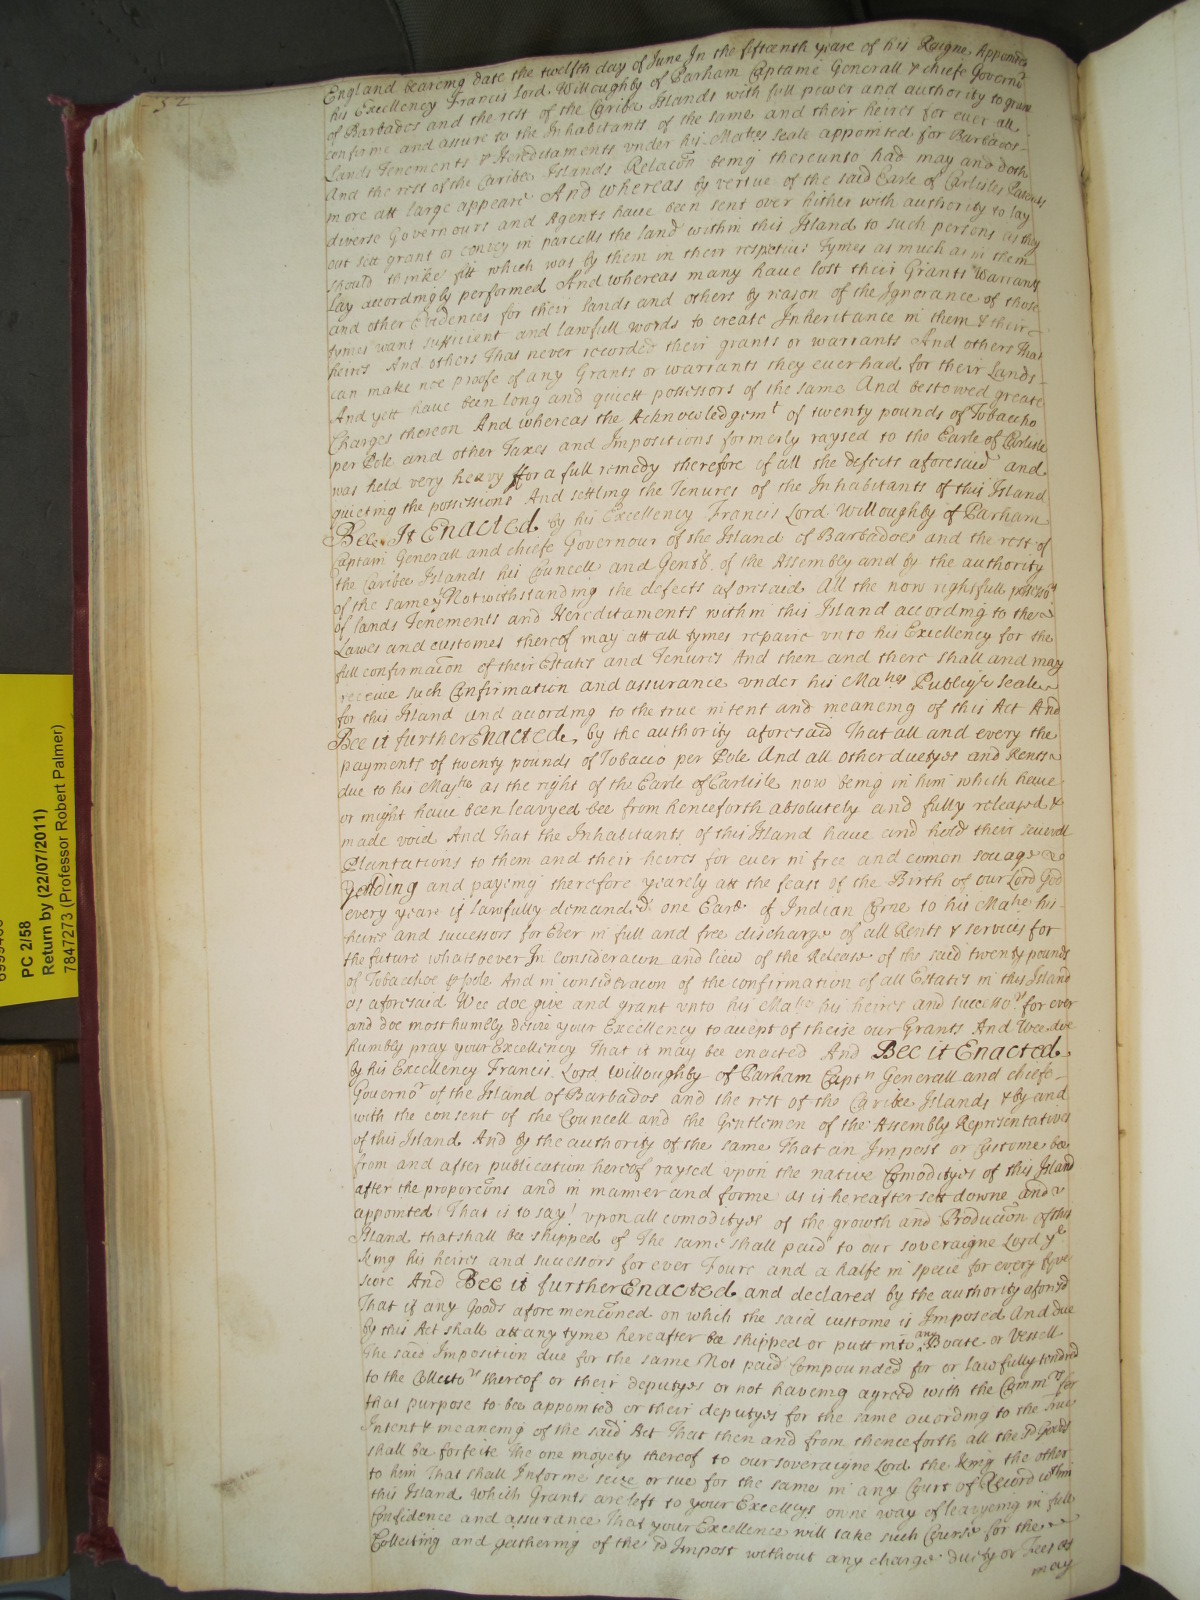 52
England bearemg date the twelfth day of June In the fifteenth yeare of his Reigne Appointed
his Excellency Francis Lord Willoughby of Parham Captaine Generall & chiefe Governor
of Barbados and the rest of the Caribee Islands with full power and authority to graunt
confirme and assure to the Inhabitants of the same and their heires for ever all
Lands Tenements & Hereditaments vnder his Maties seale appointed for Barbados
And the rest of the Caribee Islands Relacōn being thereunto had may and doth
more att large appeare And whereas by vertue of the said Earle of Carlisles Patents
diverse Governours and Agents have been sent over hither with authority to lay
out sett grant or convey in parcells the land within this Island to such persons as they
should thinke fitt which was by them in their respective Tymes as much as in them
Lay accordingly performed And whereas many have lost their Grants Warrants
and other Evidences for their lands and others by reason of the Ignorance of those
tymes want sufficient and lawfull words to create Inheritance in them & their
heirs And others That never recorded their grants or warrants And others That
can make noe proofe of any Grants or warrants they ever had for their Lands
And yett have been long and quiett possessors of the same And bestowed greate
Charges thereon And whereas the Acknowledgemt of twenty pounds of Tobaccho
per Pole and other Taxes and Impositions formerly raysed to the Earle of Carlisle
was held very heavy ffor a full remedy therefore of all the defects aforesaid and
quieting the possessions And settling the Tenures of the Inhabitants of this Island
Bee It Enacted by his Excellency Francis Lord Willoughby of Parham
Captain Generall and chiefe Governour of the Island of Barbadoes and the rest of
the Caribee Islands his Councell and of the Assembly and by the authority
of the same Notwithstanding the defects aforesaid All the now rightfull
of lands Tenements and Hereditaments within this Island according to the
Lawes and customes thereof may att all tymes repaire vnto his Excellency for the
full confirmacōn of their Estates and Tenures And then and there shall and may
receive such Confirmation and assurance vnder his Maties Publique seale
for this Island and according to the true intent and meaneing of this Act And
Bee it further Enacted, by the authority aforesaid That all and every the
payments of twenty pounds of Tobacio per Pole And all other duetyes and Rents
due to his Majtie as the right of the Earle of Carlisle now being in him which have
or might have been leavyed bee from henceforth absolutely and fully released &
made void And That the Inhabitants of this Island have and hold their severall
Plantations to them and their heires for ever in free and comon socage
Yeilding and payeing therefore yearely att the feast of the Birth of our Lord God
every yeare if lawfully demanded one Eare of Indian Corne to his Matie his
heires and successors for Ever in full and free discharge of all Rents & services for
the future whatsoever In consideracon and liew of the Release of the said twenty pounds
of Tobacchoe p pole And in consideracon of the confirmation of all Estates in this Island
as aforesaid Wee doe give and grant vnto his Matie his heires and successors for ever
and doe most humbly desire your Excellency to accept of theise our Grants And Wee doe
humbly pray your Excellency That it may bee enacted And Bee it Enacted
by his Excellency Francis Lord Willoughby of Parham Captn Generall and chiefe
Governor of the Island of Barbados and the rest of the Caribee Islands & by and
with the consent of the Councell and the Gentlemen of the Assembly Representatives
of this Island And by the authority of the same That an Impost or Custome bee
from and after publication hereof raysed vpon the native Comodityes of this Island
after the proporcōns and in manner and forme as is hereafter sett downe and
appointed That is to say vpon all comodityes of the growth and Producion of this
Island that shall bee shipped of The same shall paid to our soveraigne Lord ye
king his heires and successors for ever Foure and a halfe in specie for every five
score And Bee it further Enacted and declared by the authority aforesd
That if any Goods aforementioned on which the said custome is Imposed And due
by this Act shall att any tyme hereafter be shipped or putt into any Boate or Vessell
the said Imposition due for the same Not paid Compounded for or lawfully tendred
to the Collectors thereof or their deputyes or not haveing agreed with the Commrs for
that purpose to bee appointed or their deputyes for the same according to the True
Intent & meaneing of the said Act That then and from thenceforth all the sd Goods
shall bee forfeite The one moyety thereof to our soveraigne Lord the king the other
to him That shall Informe seize or sue for the same in any Court of Record within
this Island Which Grants are left to your Excellcys owne way of leavyeing in full
Confidence and assurance That your Excellence will take such Course for the
Collecting and gathering of the sd Impost without any charge duety or Fees as
may
PC 2/58
Return by (22/07/2011)
7847273 (Professor Robert Palmer)